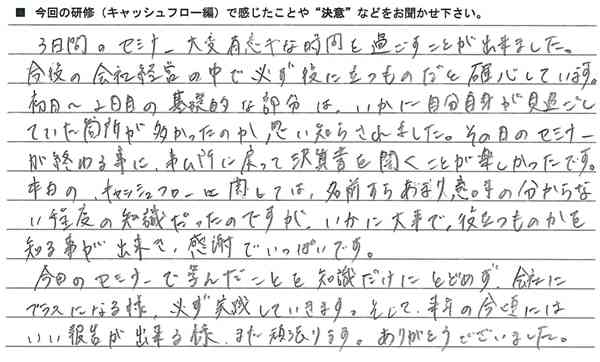 ■ 今回の研修（キャッシュフロー編）で感じたことや“決意”などをお聞かせ下さい。
3日間のセミナー大変有意義な時間を過ごすことが出来ました。
今後の会社経営の中で必ず役に立つものだと確心しています。
初日〜2日目の基礎的な部分は、いかに自分自身が見過ごし
ていた箇所が多かったのか、思い知らされました。その日のセミナー
が終わる事に、事ム所に戻って決算書を開くことが楽しかったです。
本日のキャッシュフローに関しては、名前すらあまり意味の分からな
い程度の知識だったのですが、いかに大事で、役立つものかを
知る事が出来き、感謝でいっぱいです。
今回のセミナーで学んだことを知識だけにとどめず、会社に
プラスになる様、必ず実践していきます。そして、来年の今頃には
いい報告が出来る様、また頑張ります。ありがとうございました。